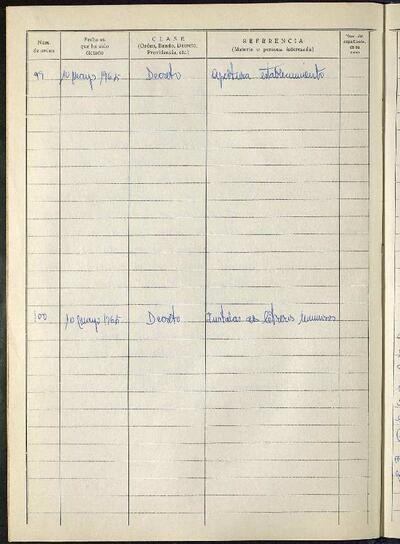 Núm.
de orden
Fecha en
que ha sido
dictado
CLASE
(Orden, Bando, Decreto,
Providencia, etc.)
REFERENCIA
(Materia o persona interesada)
99 10 mayo 1965 Decreto Apertura establecimiento
100 10 mayo 1965 Decreto letreros luminosos